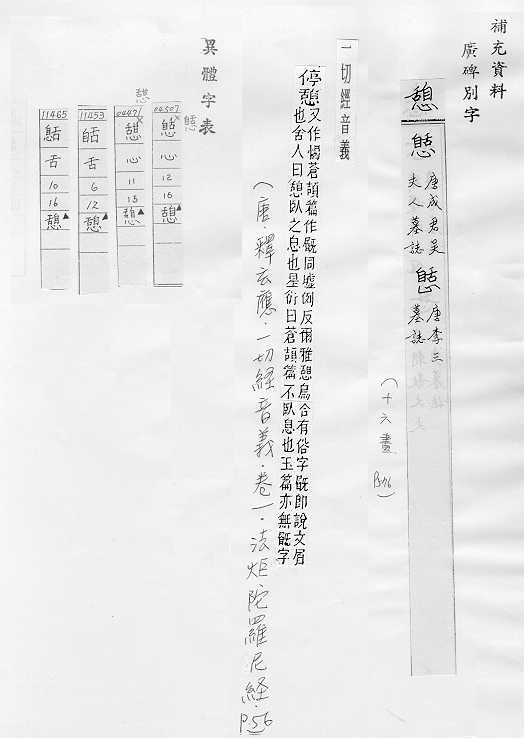 補充資料
廣碑別字
憩
唐成君吴
夫人墓誌
唐李三
墓誌
(十六畫 P.576)
一切經音義
停憩又作愒蒼頡篇作
同墟例反爾雅憩
合有俗字
即說文
也舍人曰憩臥之息也
曰蒼頡篇不臥息也玉篇亦無
字
(唐·釋玄應·一切経音義·卷一·法炬陀羅尼経·P.56)
異體字表
憩
04507
心
12
16
憩▲
04471
憇
心
11
15
憩▲
11453
舌
6
12
憩▲
11465
舌
10
16
憩▲